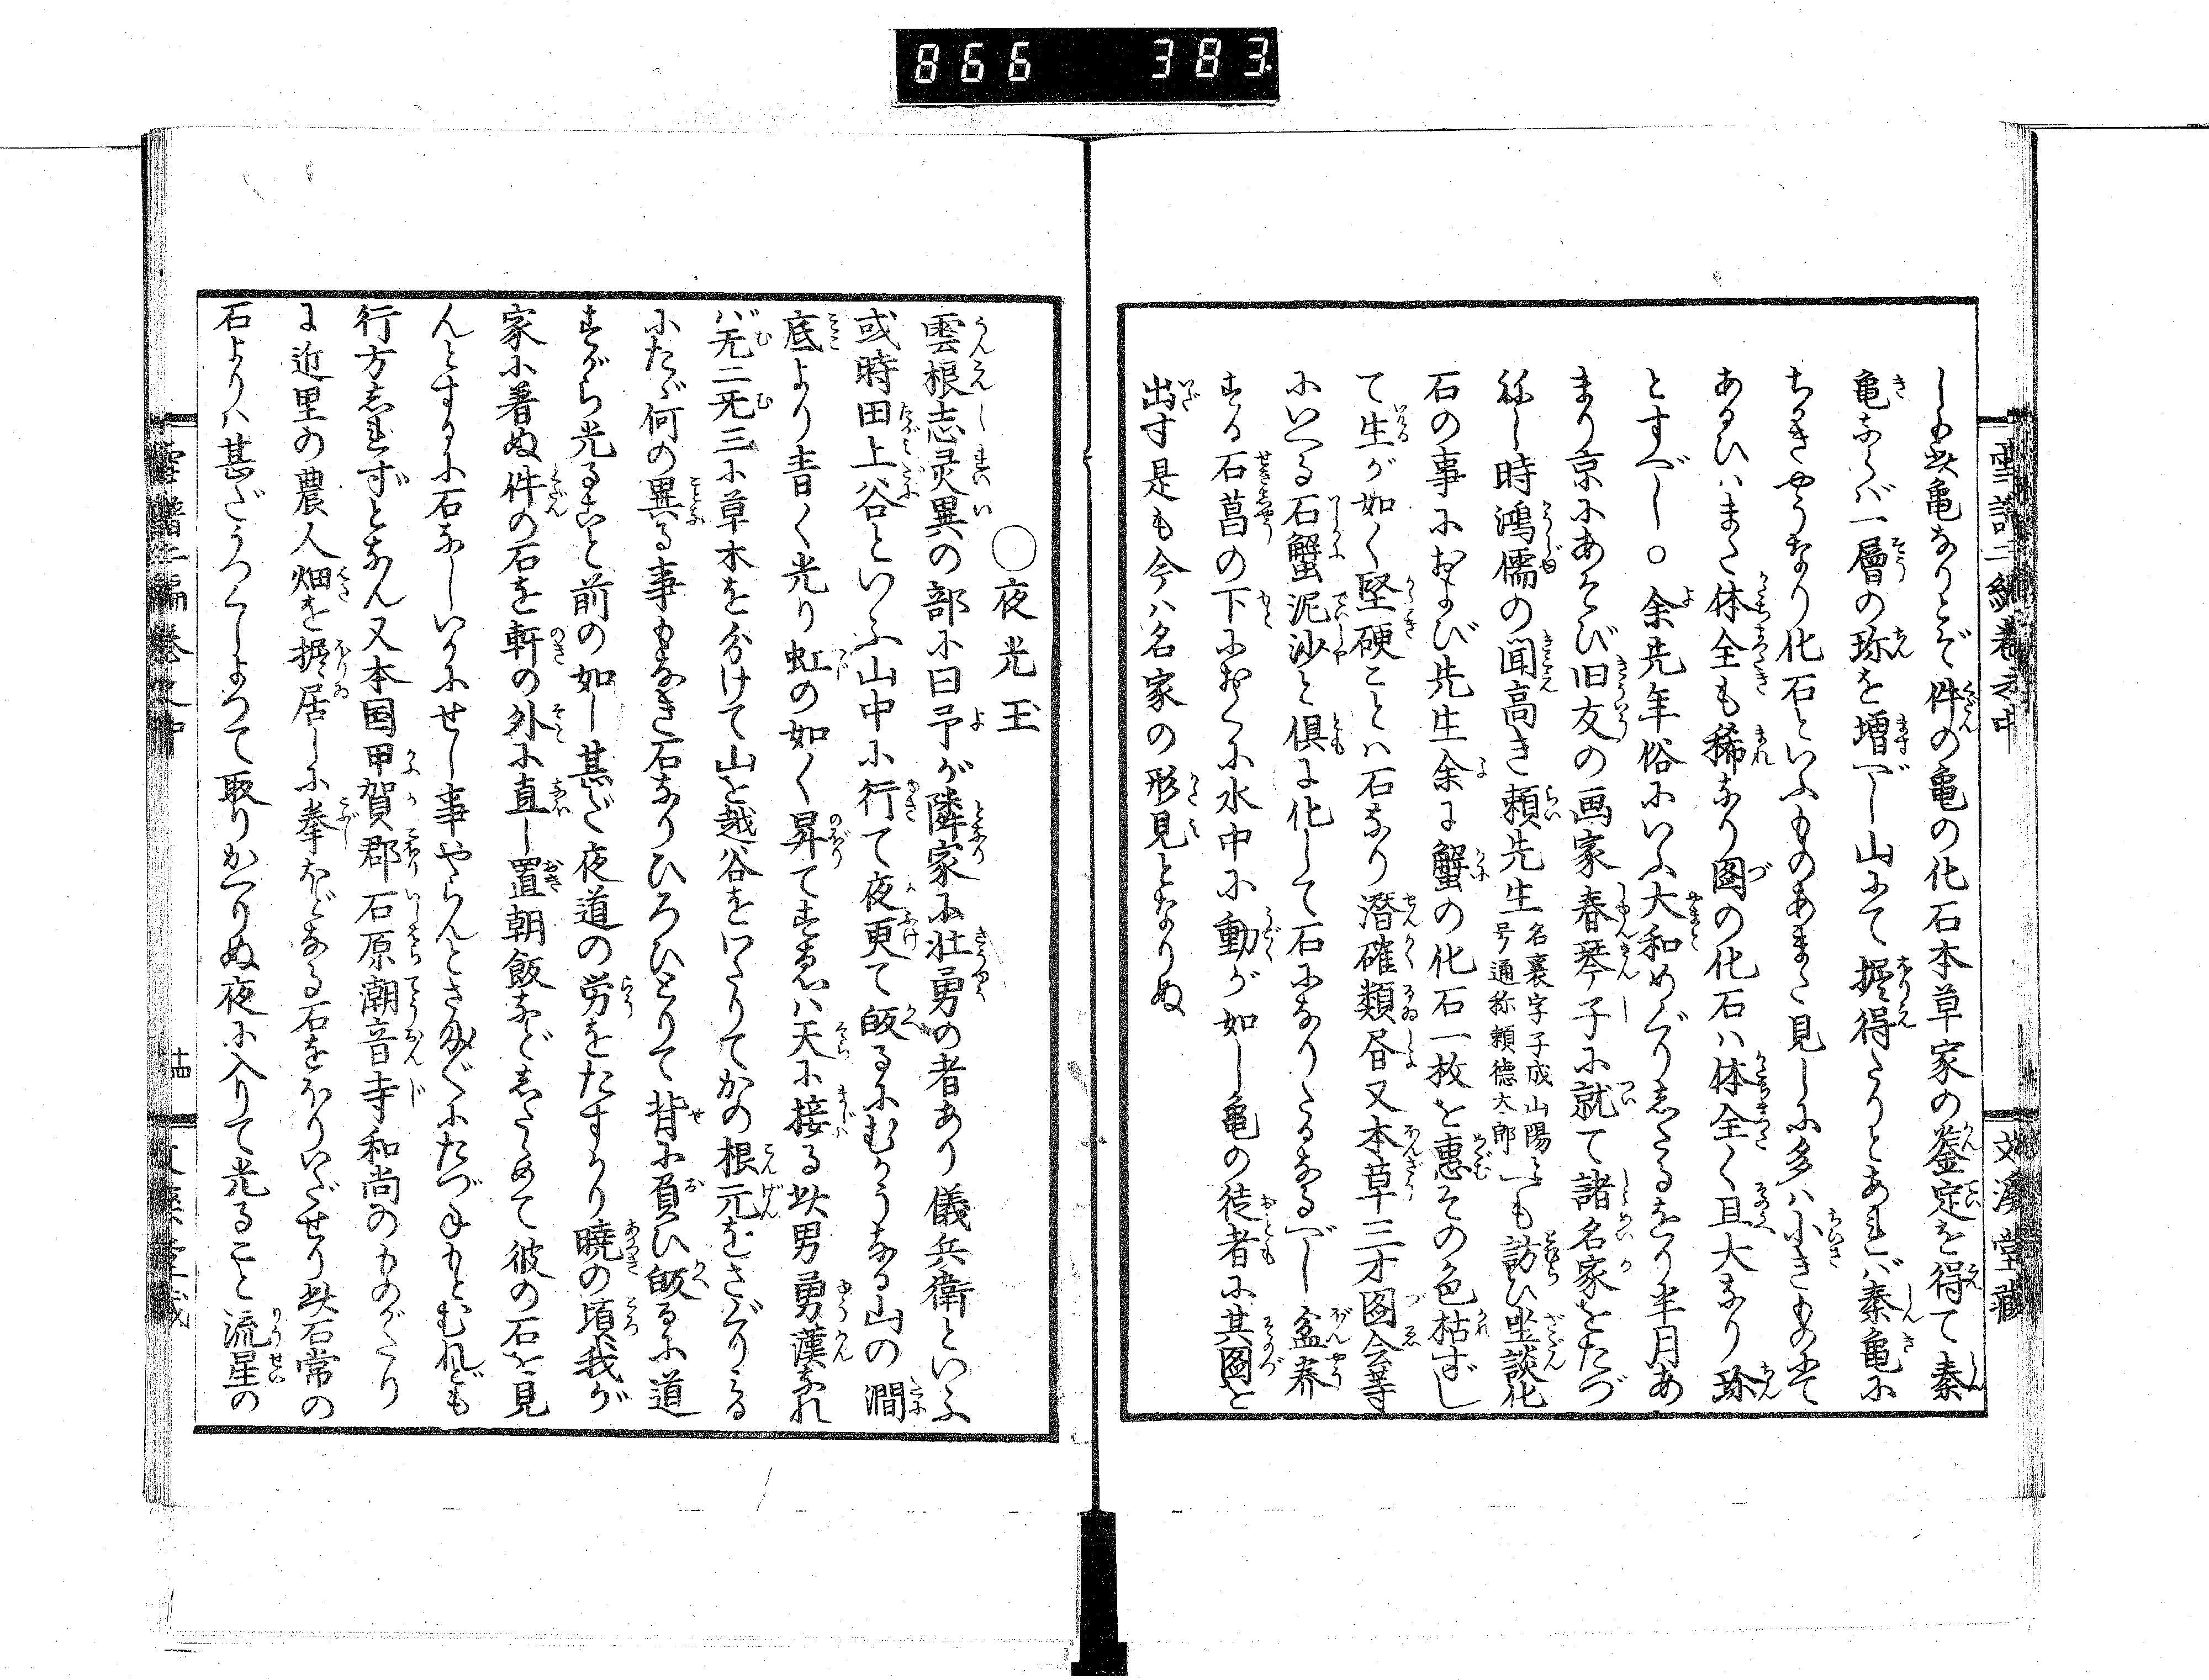 866 383
雪譜二編巻之中
文溪堂藏
しも此亀なりとぞ件の亀の化石本草家の鑒定を得て秦
亀ならバ一層の珍を増べし山にて掘得たりとあれバ秦亀に
ちかきやうなり化石といふものあまた見しに多ハ小きものにて
あるひハまた体全も稀なり図の化石ハ体全く且大なり珍
とすべし○余先年俗にいふ大和めぐりしたるをり半月あ
まり京にあそび旧友の画家春琴子に就て諸名家をたづ
ねし時鴻儒の聞高き頼先生名襄字子成山陽と号通称頼徳太郎へも訪ひ坐談化
石の事におよび先生余に蟹の化石一枚を恵その色枯ずし
て生が如く堅硬ことハ石なり潜確類書又本草三才図会等
にいへる石蟹泥沙と倶に化して石になりたるなるべし盆養
する石菖の下におくに水中に動が如し亀の徒者に其図を
出す是も今ハ名家の形見となりぬ
○夜光玉
雲根志灵異の部に曰予が隣家に壮勇の者あり儀兵衛といふ
或時田上谷といふ山中に行て夜更て皈るにむかうなる山の澗
底より青く光り虹の如く昇てすゑハ天に接る此男勇漢なれ
バ无二无三に草木を分けて山を越谷をいたりてかの根元をさぐりみる
にたゞ何の異る事もなき石なりひろひとりて背に負ひ皈るに道
すがら光ること前の如し甚だ夜道の労をたすかり暁の頃我が
家に着ぬ件の石を軒の外に直し置朝飯などしたゝめて彼の石を見
んとするに石なしいかにせし事やらんとさま〴〵にたづねもとむれども
行方しれずとなん又本国甲賀郡石原潮音寺和尚のものがたり
に近里の農人畑を掘居しに拳ほどなる石をほりいだせり此石常の
石よりハ甚だうつくしよつて取りかへりぬ夜に入りて光ること流星の
雪譜二編巻之中
十四
文溪堂藏